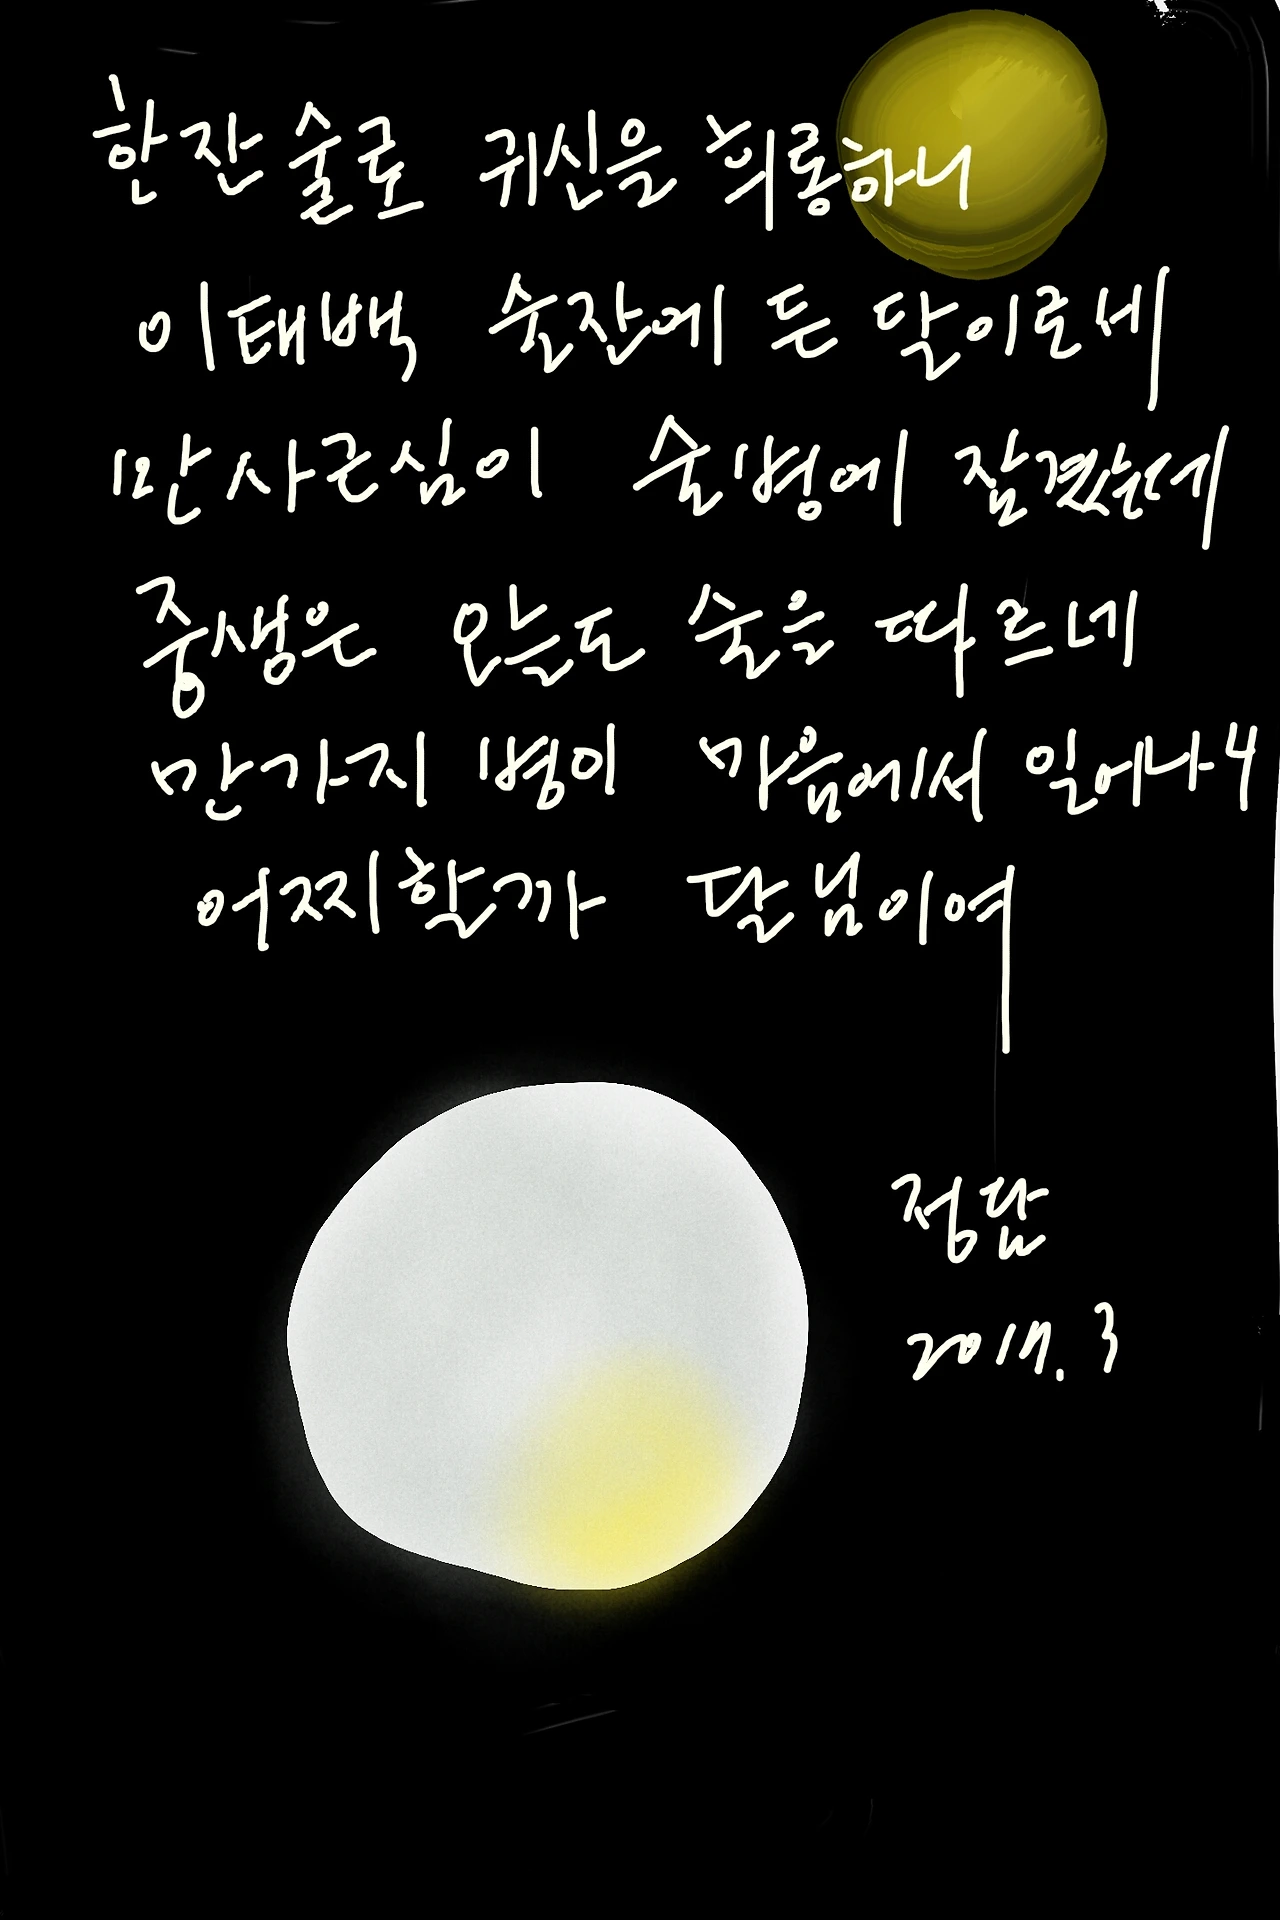 한잔 술로 귀신을 희롱하니
이태백 술잔에 든 달이로세
만사근심이 술병에 잠겼는데
중생은 오늘도 술을 따르네
만가지 병이 마음에서 일어나니
어찌할까 달님이여
정담
2017. 3